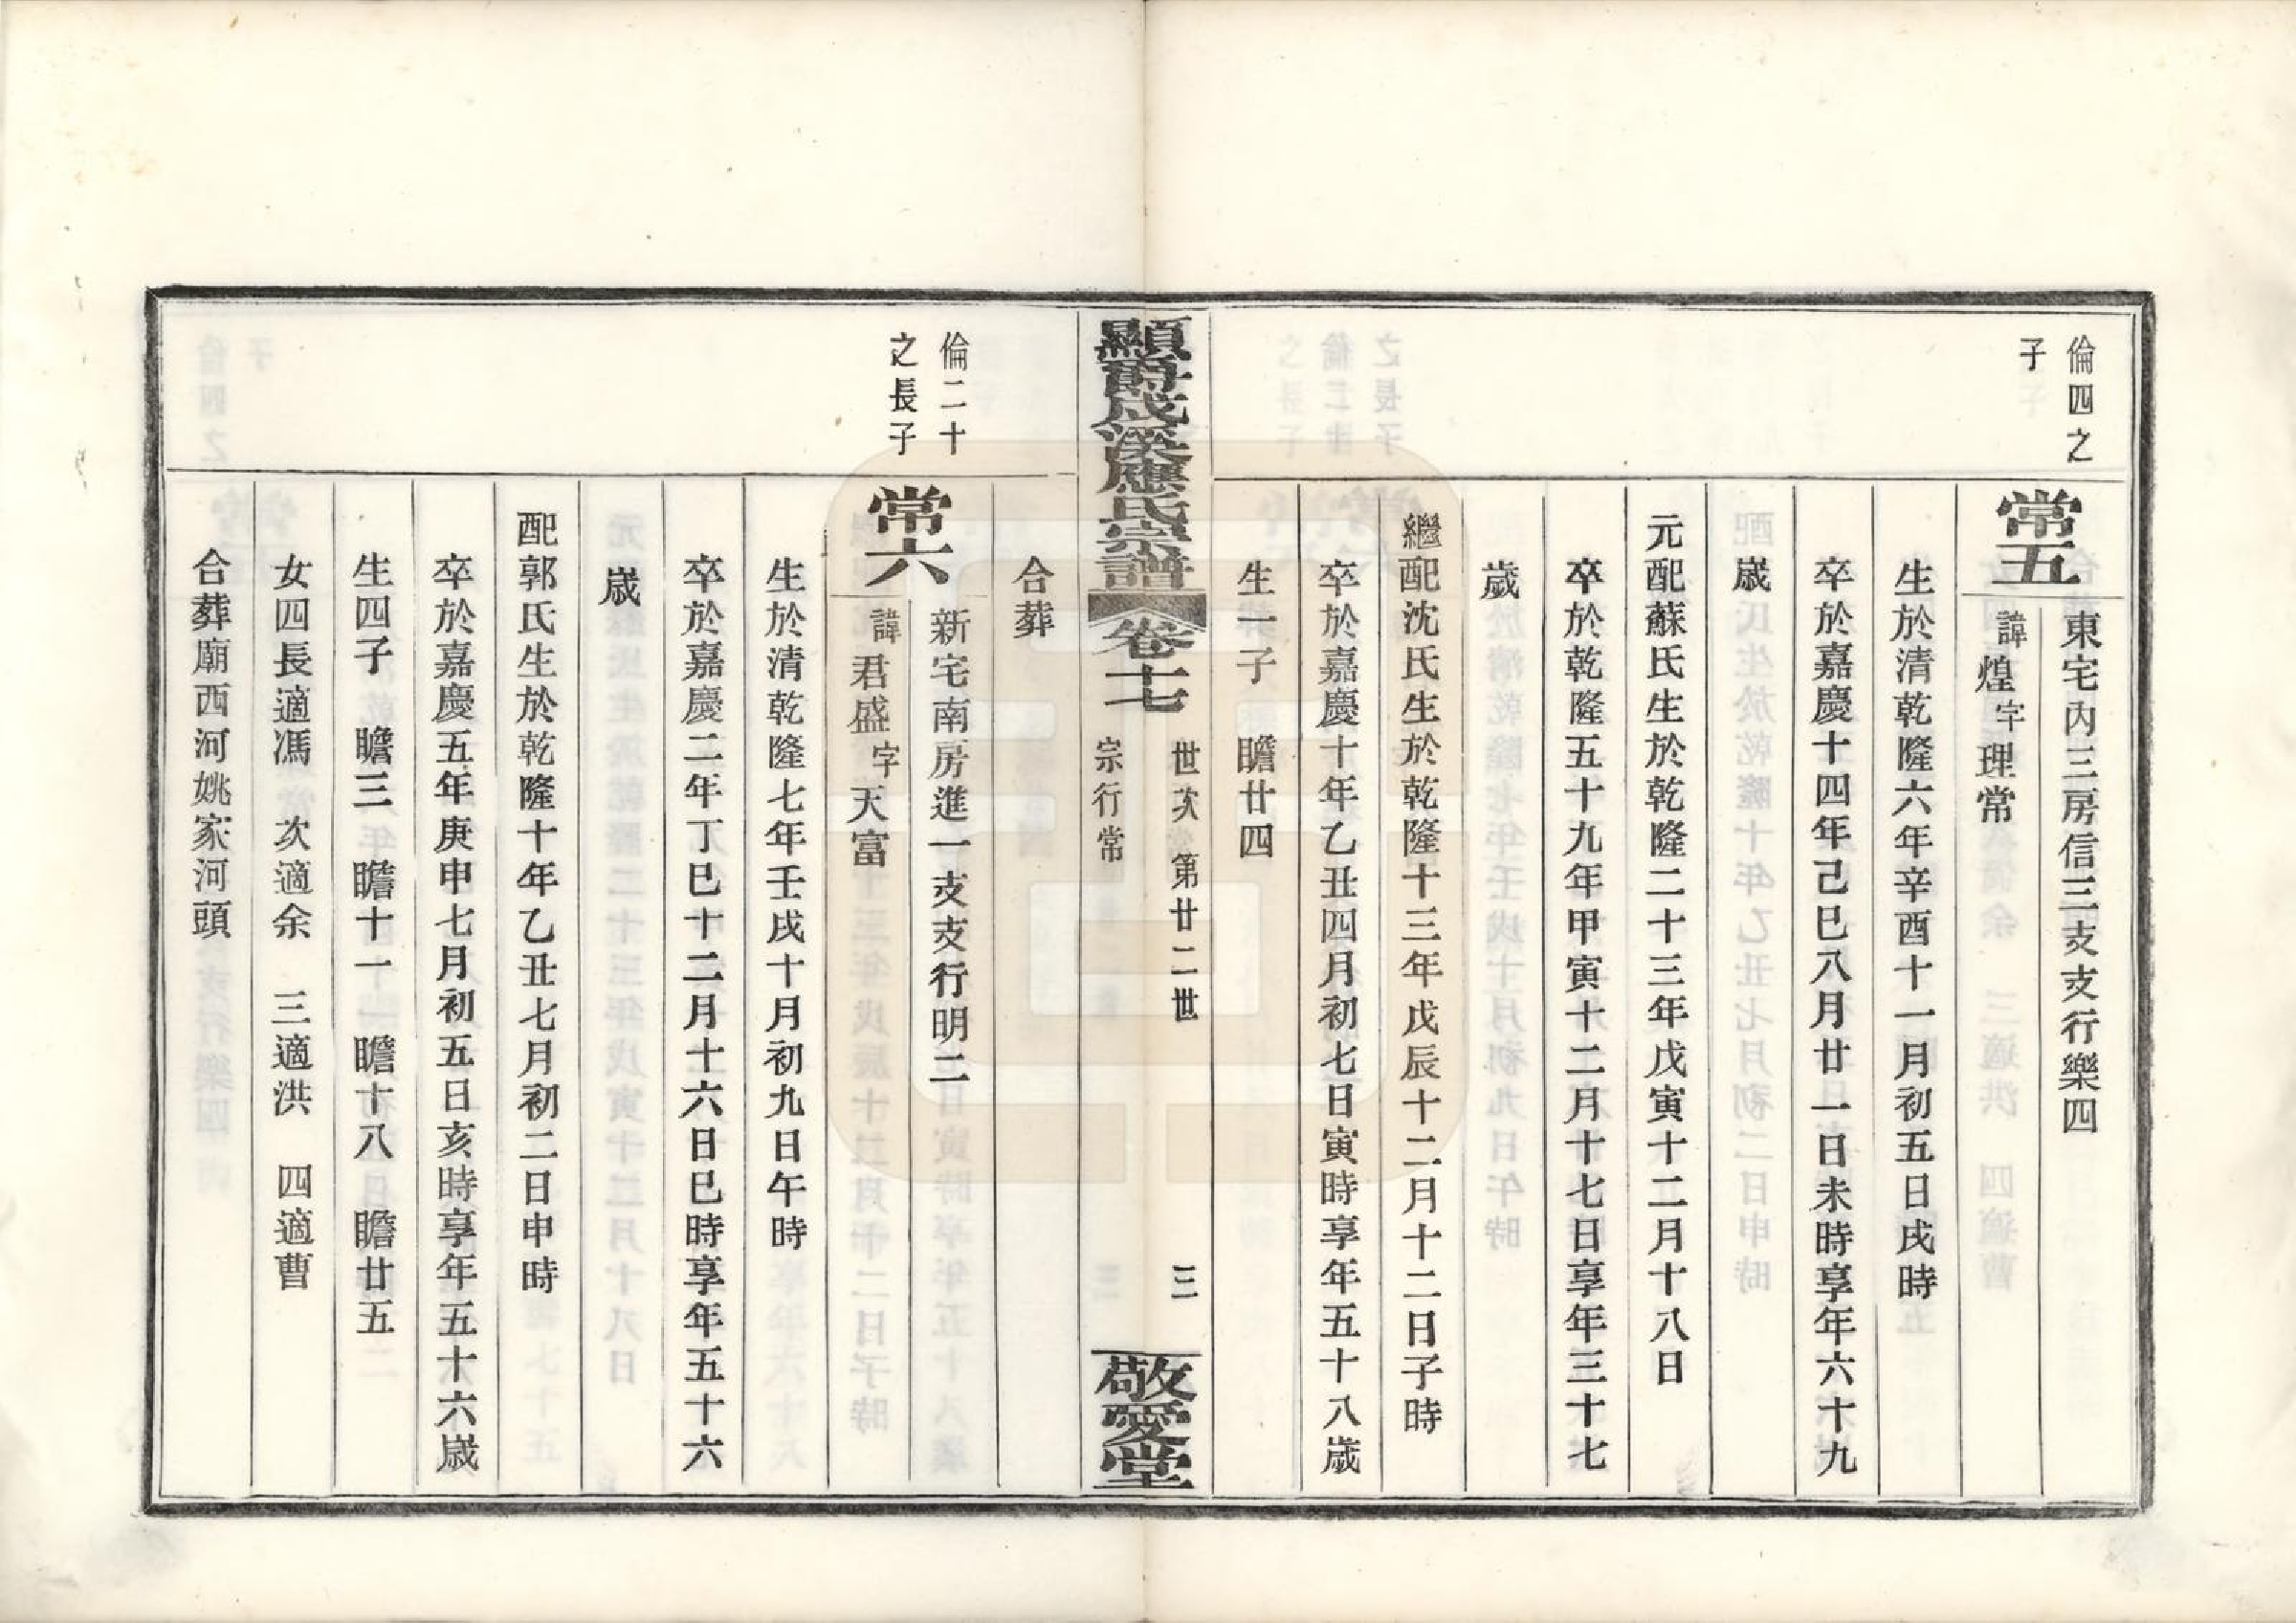 倫四之
子
常五
東宅內三房信三支支行樂四
諱煌字理常
生於清乾隆六年辛酉十一月初五日戌時
卒於嘉慶十四年己巳八月廿一日未時享年六十九
歲
元配蘇氏生於乾隆二十三年戊寅十二月十八日
卒於乾隆五十九年甲寅十二月十七日享年三十七
歲
繼配沈氏生於乾隆十三年戊辰十二月十二日子時
卒於嘉慶十年乙丑四月初七日寅時享年五十八歲
生一子 瞻廿四
顯爵成溪應氏宗譜
卷十七
世次 第廿二世
宗行常
三
敬愛堂
合葬
倫二十
之長子
常六
新宅南房進一支支行明二
諱君盛字天富
生於清乾隆七年壬戌十月初九日午時
卒於嘉慶二年丁巳十二月十六日巳時享年五十六
歲
配郭氏生於乾隆十年乙丑七月初二日申時
卒於嘉慶五年庚申七月初五日亥時享年五十六歲
生四子 瞻三 瞻十一 瞻十八 瞻廿五
女四長適馮 次適余 三適洪 四適曹
合葬廟西河姚家河頭